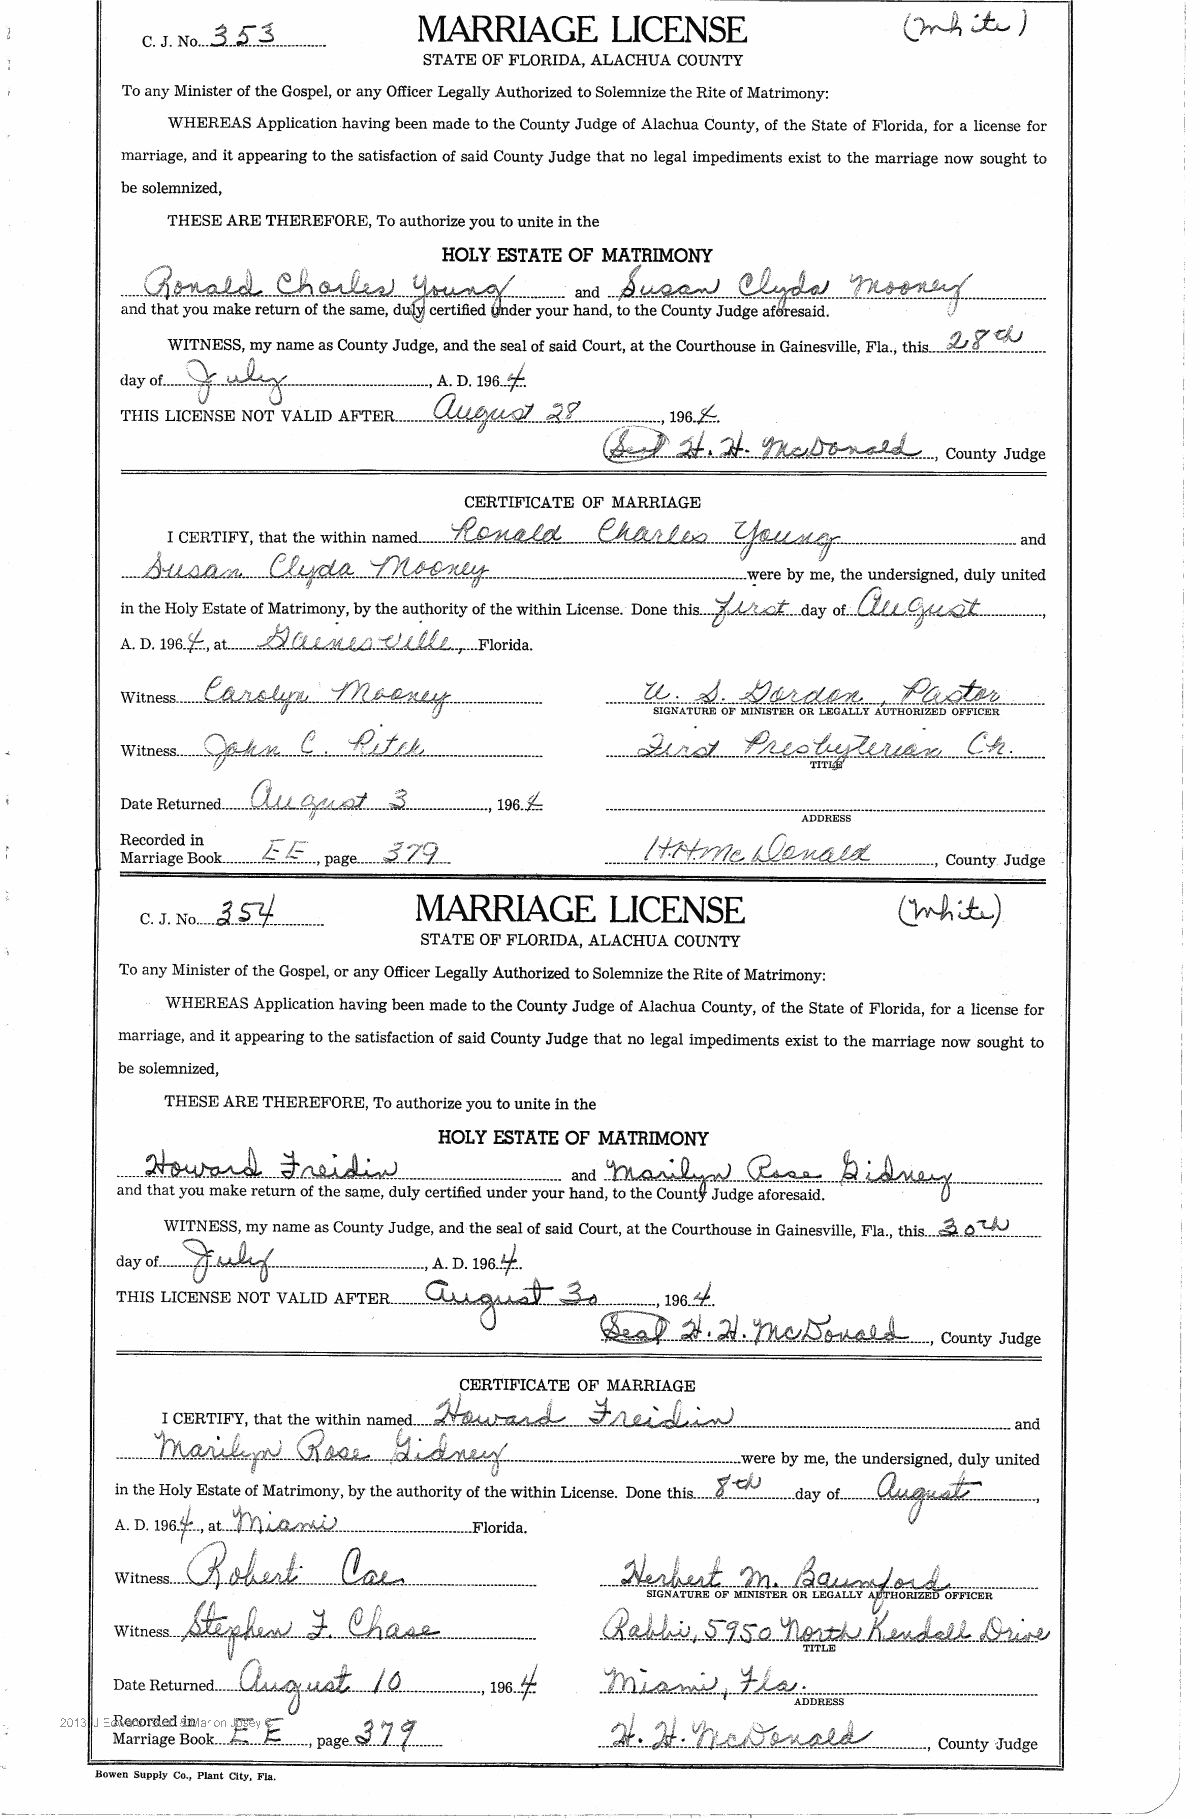 C. J. No. 353 MARRIAGE LICENSE (White)
STATE OF FLORIDA, ALACHUA COUNTY
To any Minister of the Gospel, or any Officer Legally Authorized to Solemnize the Rite of Matrimony:
WHEREAS Application having been made to the County Judge of Alachua County, of the State of Florida, for a license for
marriage, and it appearing to the satisfaction of said County Judge that no legal impediments exist to the marriage now sought to
be solemnized,
THESE ARE THEREFORE, To authorize you to unite in the
HOLY ESTATE OF MATRIMONY
Ronald Charles Young and Susan Clyda Mooney
and that you make return of the same, duly certified under your hand, to the County Judge aforesaid.
WITNESS, my name as County Judge, and the seal of said Court, at the Courthouse in Gainesville, Fla., this 28th
day of July, A. D. 1964.
THIS LICENSE NOT VALID AFTER August 28, 1964.
(Seal) H. H. McDonald, County Judge
CERTIFICATE OF MARRIAGE
I CERTIFY, that the within named Ronald Charles Young and
Susan Clyda Mooney were by me, the undersigned, duly united
in the Holy Estate of Matrimony, by the authority of the within License. Done this first day of August,
A. D. 1964, at Gainesville, Florida.
Witness Carolyn Mooney U. S. Gordon, Pastor
SIGNATURE OF MINISTER OR LEGALLY AUTHORIZED OFFICER
Witness John C. Ritch First Presbyterian Ch.
TITLE
Date Returned August 3, 1964
ADDRESS
Recorded in
Marriage Book EE, page 379 H.H. McDonald, County Judge
C. J. No. 354 MARRIAGE LICENSE (White)
STATE OF FLORIDA, ALACHUA COUNTY
To any Minister of the Gospel, or any Officer Legally Authorized to Solemnize the Rite of Matrimony:
WHEREAS Application having been made to the County Judge of Alachua County, of the State of Florida, for a license for
marriage, and it appearing to the satisfaction of said County Judge that no legal impediments exist to the marriage now sought to
be solemnized,
THESE ARE THEREFORE, To authorize you to unite in the
HOLY ESTATE OF MATRIMONY
Howard Freidin and Marilyn Rose Gidney
and that you make return of the same, duly certified under your hand, to the County Judge aforesaid.
WITNESS, my name as County Judge, and the seal of said Court, at the Courthouse in Gainesville, Fla., this 30th
day of July, A. D. 1964.
THIS LICENSE NOT VALID AFTER August 30, 1964.
(Seal) H. H. McDonald, County Judge
CERTIFICATE OF MARRIAGE
I CERTIFY, that the within named Howard Freidin and
Marilyn Rose Gidney were by me, the undersigned, duly united
in the Holy Estate of Matrimony, by the authority of the within License. Done this 8th day of August,
A. D. 1964, at Miami Florida.
Witness Robert Coe Herbert M. Baumford
SIGNATURE OF MINISTER OR LEGALLY AUTHORIZED OFFICER
Witness Stephen F. Chase Rabbi, 5950 North Kendall Drive
TITLE
Date Returned August 10, 1964 Miami, Fla.
ADDRESS
2013 J
Recorded in
Marriage Book EE, page 379 H. H. McDonald, County Judge
Bowen Supply Co., Plant City, Fla.